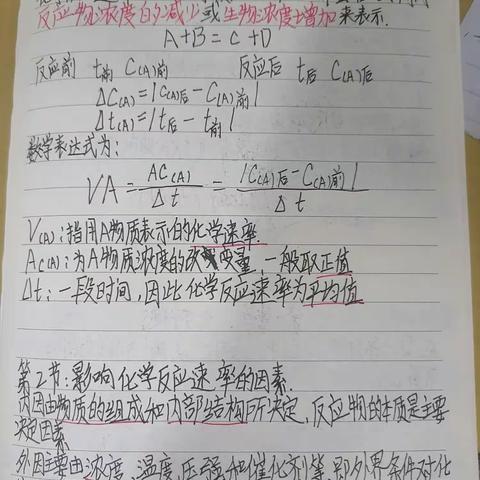 反应物浓度的减少或生物浓度增加来表示.
A+B=C+D
反应前 t前 C(A)前 反应后 t后 C(A)后
ΔC(A)=|C(A)后-C(A)前|
Δt(A)=|t后-t前|
数学表达式为:
VA=ΔC(A)/Δt=|C(A)后-C(A)前|/Δt
V(A):指用A物质表示的化学速率.
ΔC(A):为A物质浓度的改变量,一般取正值
Δt:一段时间,因此化学反应速率为平均值
第2节:影响化学反应速率的因素.
内因由物质的组成和内部结构所决定,反应物的本质是主要
决定因素
外因主要由浓度、温度、压强和催化剂等,即外界条件对化